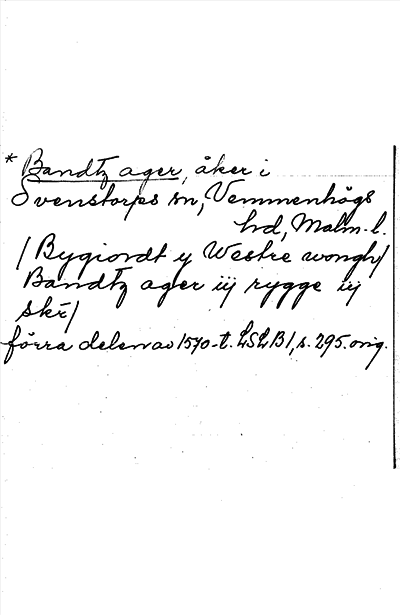 * Bandtz ager, åker i
Svenstorps sn, Vemmenhögs
hd, Malm. l.
/Bygiordt y Westre wongh/
Bandtz ager iij rygge iij
skr̄/
förra delen av 1570-t. LSLB1, s. 295. orig.